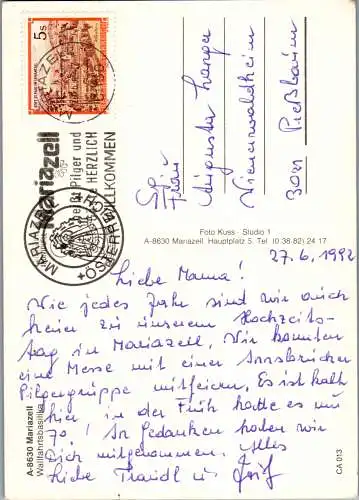 5 s
MARIAZELL
Mariazell
heißt Pilger und
HERZLICH
WILLKOMMEN
MARIAZELL
ÖSTERREICH
Frau
Auguste
Wienerwaldheim
3011 Preßbaum
Foto Kuss · Studio 1
A-8630 Mariazell Hauptplatz 5, Tel (0 38 82) 24 17
27.6.1992
Liebe Mama!
Wie jedes Jahr sind wir auch
heuer zu unserem Hochzeits-
tag in Mariazell. Wir konnten
eine Messe mit einer Innsbrucker
Pilgergruppe mitfeiern. Es ist kalt
hier, in der Früh hatte es nur
7°! In Gedanken haben wir
Dich mitgenommen. Alles
Liebe Traudl u.
A-8630 Mariazell
Wallfahrtsbasilika
CA 013